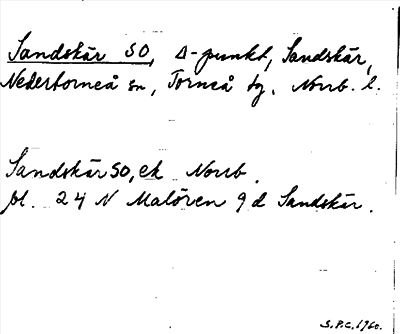 Sandskär SO, Δ-punkt, Sandskär,
Nedertorneå sn, Torneå tg, Norrb. l.
Sandskär SO, ek Norrb.
bl. 24 N Malören 9 d Sandskär.
S.P.C. 1960.